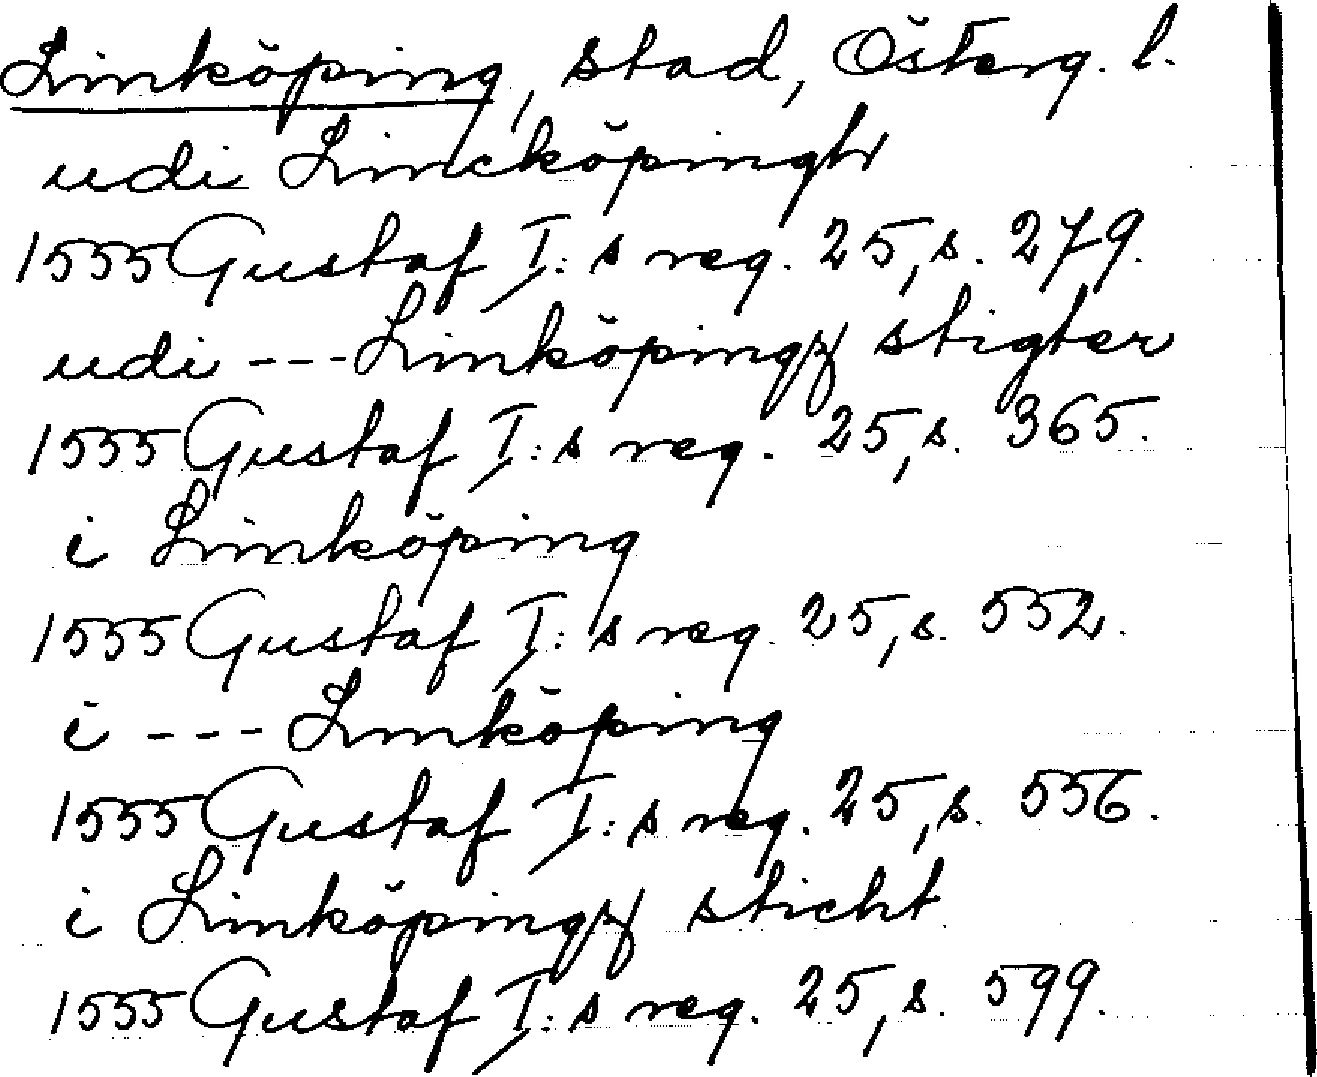 Linköping, stad, Österg. l.
udi Lincköpingh
1555 Gustaf I:s reg. 25, s. 279.
udi --- Linköpingz stigter
1555 Gustaf I:s reg. 25, s. 365.
i Linköping
1555 Gustaf I:s reg. 25, s. 552.
i --- Linköping
1555 Gustaf I:s reg. 25, s. 556.
i Linköpingz sticht
1555 Gustaf I:s reg. 25, s. 599.